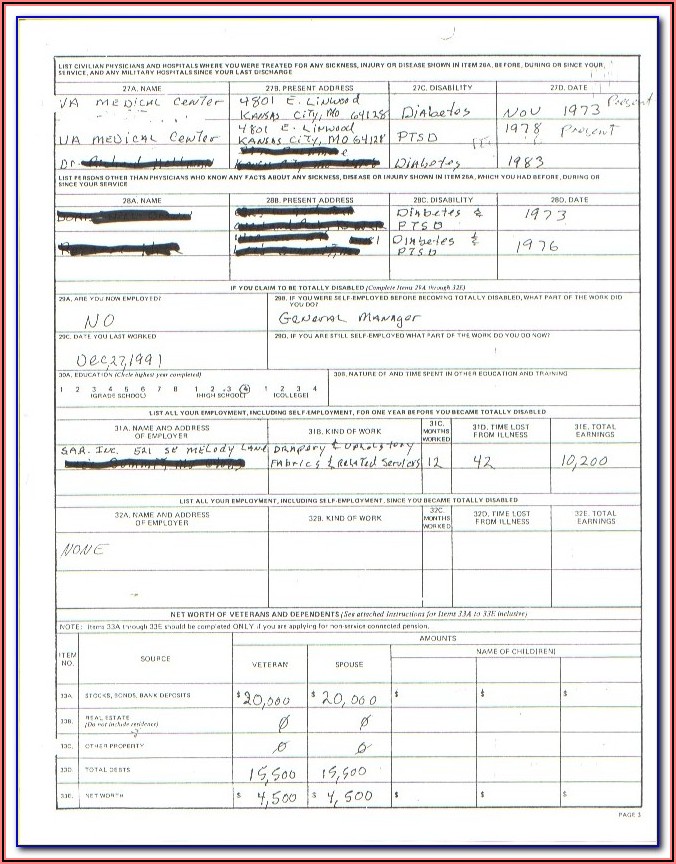 LIST CIVILIAN PHYSICIANS AND HOSPITALS WHERE YOU WERE TREATED FOR ANY SICKNESS, INJURY OR DISEASE SHOWN IN ITEM 26A, BEFORE, DURING OR SINCE YOUR
SERVICE, AND ANY MILITARY HOSPITALS SINCE YOUR LAST DISCHARGE
27A. NAME 27B. PRESENT ADDRESS 27C. DISABILITY 27D. DATE
VA Medical Center 4801 E. Linwood Kansas City, Mo 64128 Diabetes Nov 1973 Present
VA Medical Center 4801 E. Linwood Kansas City, Mo 64128 PTSD 1978 Present
Dr. Diabetes 1983
LIST PERSONS OTHER THAN PHYSICIANS WHO KNOW ANY FACTS ABOUT ANY SICKNESS, DISEASE OR INJURY SHOWN IN ITEM 26A, WHICH YOU HAD BEFORE, DURING OR
SINCE YOUR SERVICE
28A. NAME 28B. PRESENT ADDRESS 28C. DISABILITY 28D. DATE
Diabetes & PTSD 1973
Diabetes & PTSD 1976
IF YOU CLAIM TO BE TOTALLY DISABLED (Complete Items 29A through 32E)
29A. ARE YOU NOW EMPLOYED? 29B. IF YOU WERE SELF-EMPLOYED BEFORE BECOMING TOTALLY DISABLED, WHAT PART OF THE WORK DID
YOU DO?
NO General Manager
29C. DATE YOU LAST WORKED 29D. IF YOU ARE STILL SELF-EMPLOYED WHAT PART OF THE WORK DO YOU DO NOW?
Dec, 27, 1991
30A. EDUCATION (Circle highest year completed) 30B. NATURE OF AND TIME SPENT IN OTHER EDUCATION AND TRAINING
1 2 3 4 5 6 7 8 1 2 3 4 1 2 3 4
(GRADE SCHOOL) (HIGH SCHOOL) (COLLEGE)
LIST ALL YOUR EMPLOYMENT, INCLUDING SELF-EMPLOYMENT, FOR ONE YEAR BEFORE YOU BECAME TOTALLY DISABLED
31A. NAME AND ADDRESS OF EMPLOYER 31B. KIND OF WORK 31C. MONTHS WORKED 31D. TIME LOST FROM ILLNESS 31E. TOTAL EARNINGS
SAR. INC. 521 SE Melody Lane Drapery & Upholstory
Fabrics & Related Services 12 42 10,200
LIST ALL YOUR EMPLOYMENT, INCLUDING SELF-EMPLOYMENT, SINCE YOU BECAME TOTALLY DISABLED
32A. NAME AND ADDRESS OF EMPLOYER 32B. KIND OF WORK 32C. MONTHS WORKED 32D. TIME LOST FROM ILLNESS 32E. TOTAL EARNINGS
NONE
NET WORTH OF VETERANS AND DEPENDENTS (See attached Instructions for Items 33A to 33E inclusive)
NOTE: Items 33A through 33E should be completed ONLY if you are applying for non-service connected pension.
AMOUNTS
ITEM NO. SOURCE VETERAN SPOUSE NAME OF CHILD(REN)
33A. STOCKS, BONDS, BANK DEPOSITS $ 20,000 $ 20,000 $ $ $
33B. REAL ESTATE (Do not include residence) Ø Ø
33C. OTHER PROPERTY Ø Ø
33D. TOTAL DEBTS 15,500 15,500
33E. NET WORTH $ 4,500 $ 4,500 $ $ $
PAGE 3